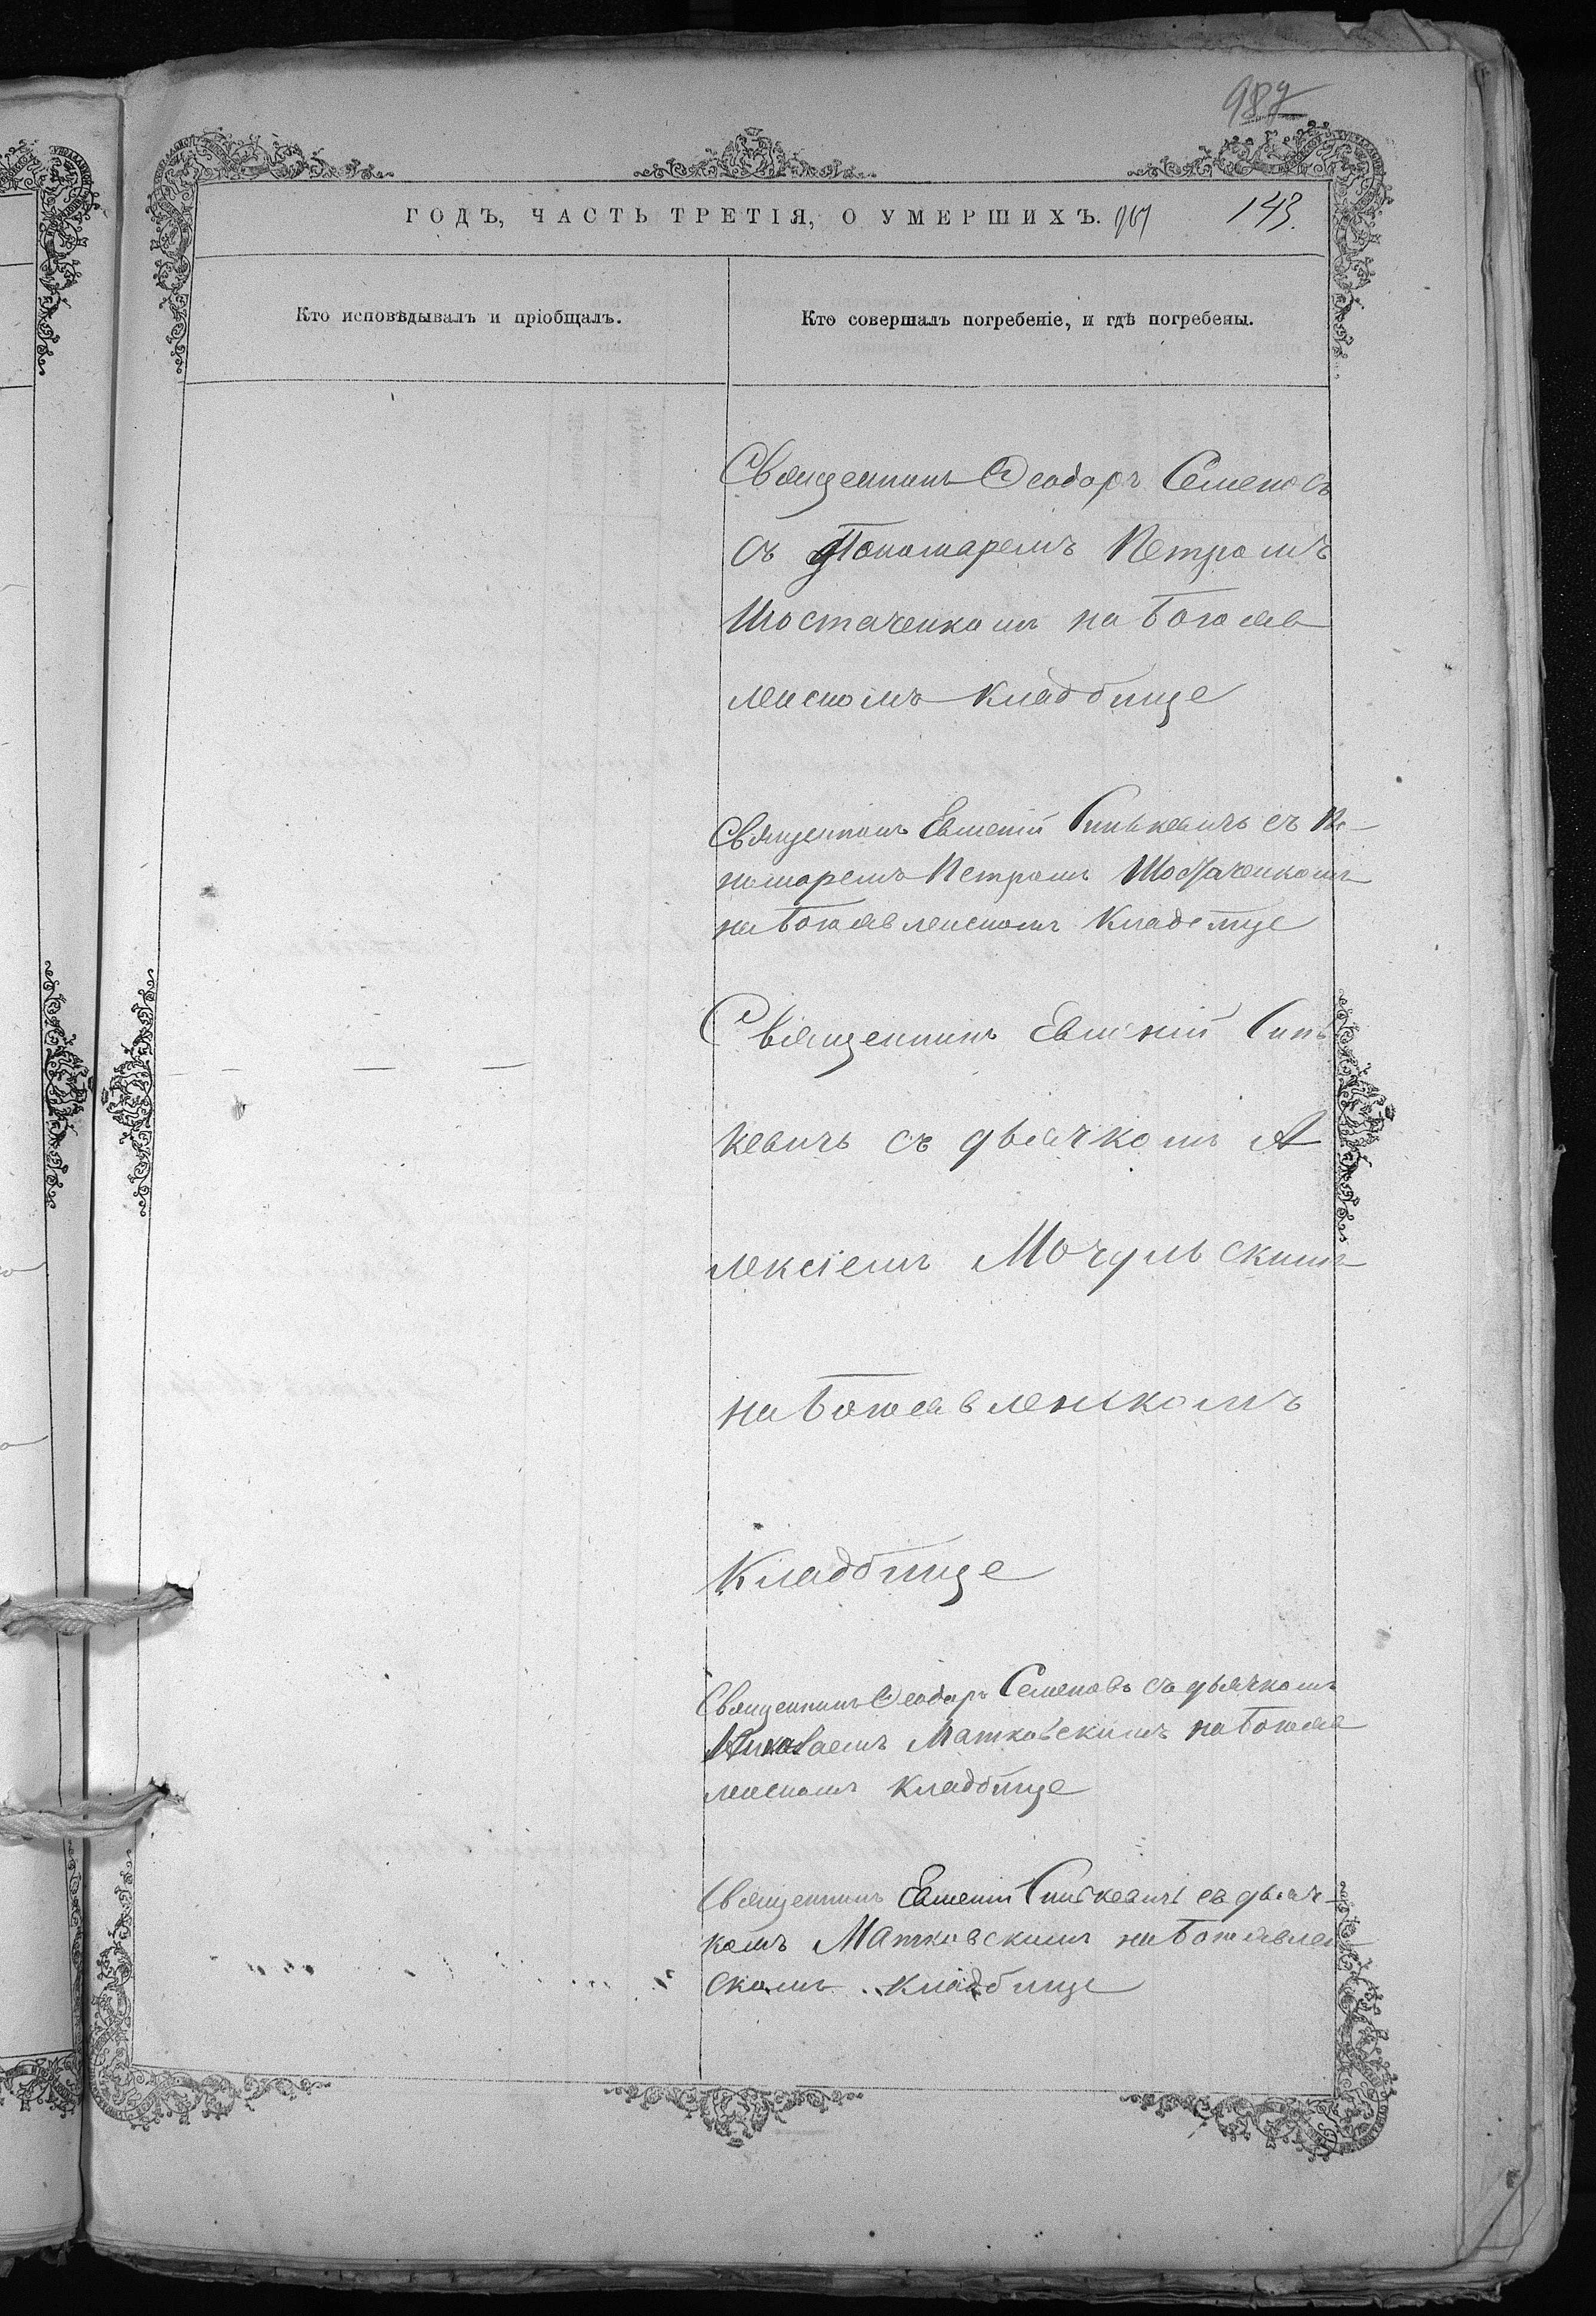 987
ГОДЪ, ЧАСТЬ ТРЕТІЯ, О УМЕРШИХЪ. 967 143.
Кто исповѣдывалъ и пріобщалъ.
Кто совершалъ погребеніе, и гдѣ погребены.
Священникъ Ѳеодоръ Семеновъ
съ Пономаремъ Петромъ
Шостаченкомъ на Богояв
ленскомъ Кладбище
Священникъ Евменій Синькевичъ съ По-
номаремъ Петромъ Шостаченкомъ
на Богоявленскомъ Кладбище
Священникъ Евменій Синь
кевичъ съ дьячкомъ А
лексіемъ Мочульскимъ
на Богоявленскомъ
Кладбище
Священникъ Ѳеодоръ Семеновъ съ дьячкомъ
Николаемъ Матковскимъ на Богояв
ленскомъ Кладбище
Священникъ Евменій Синькевичъ съ дьяч-
комъ Матковскимъ на Богоявлен
скомъ Кладбище